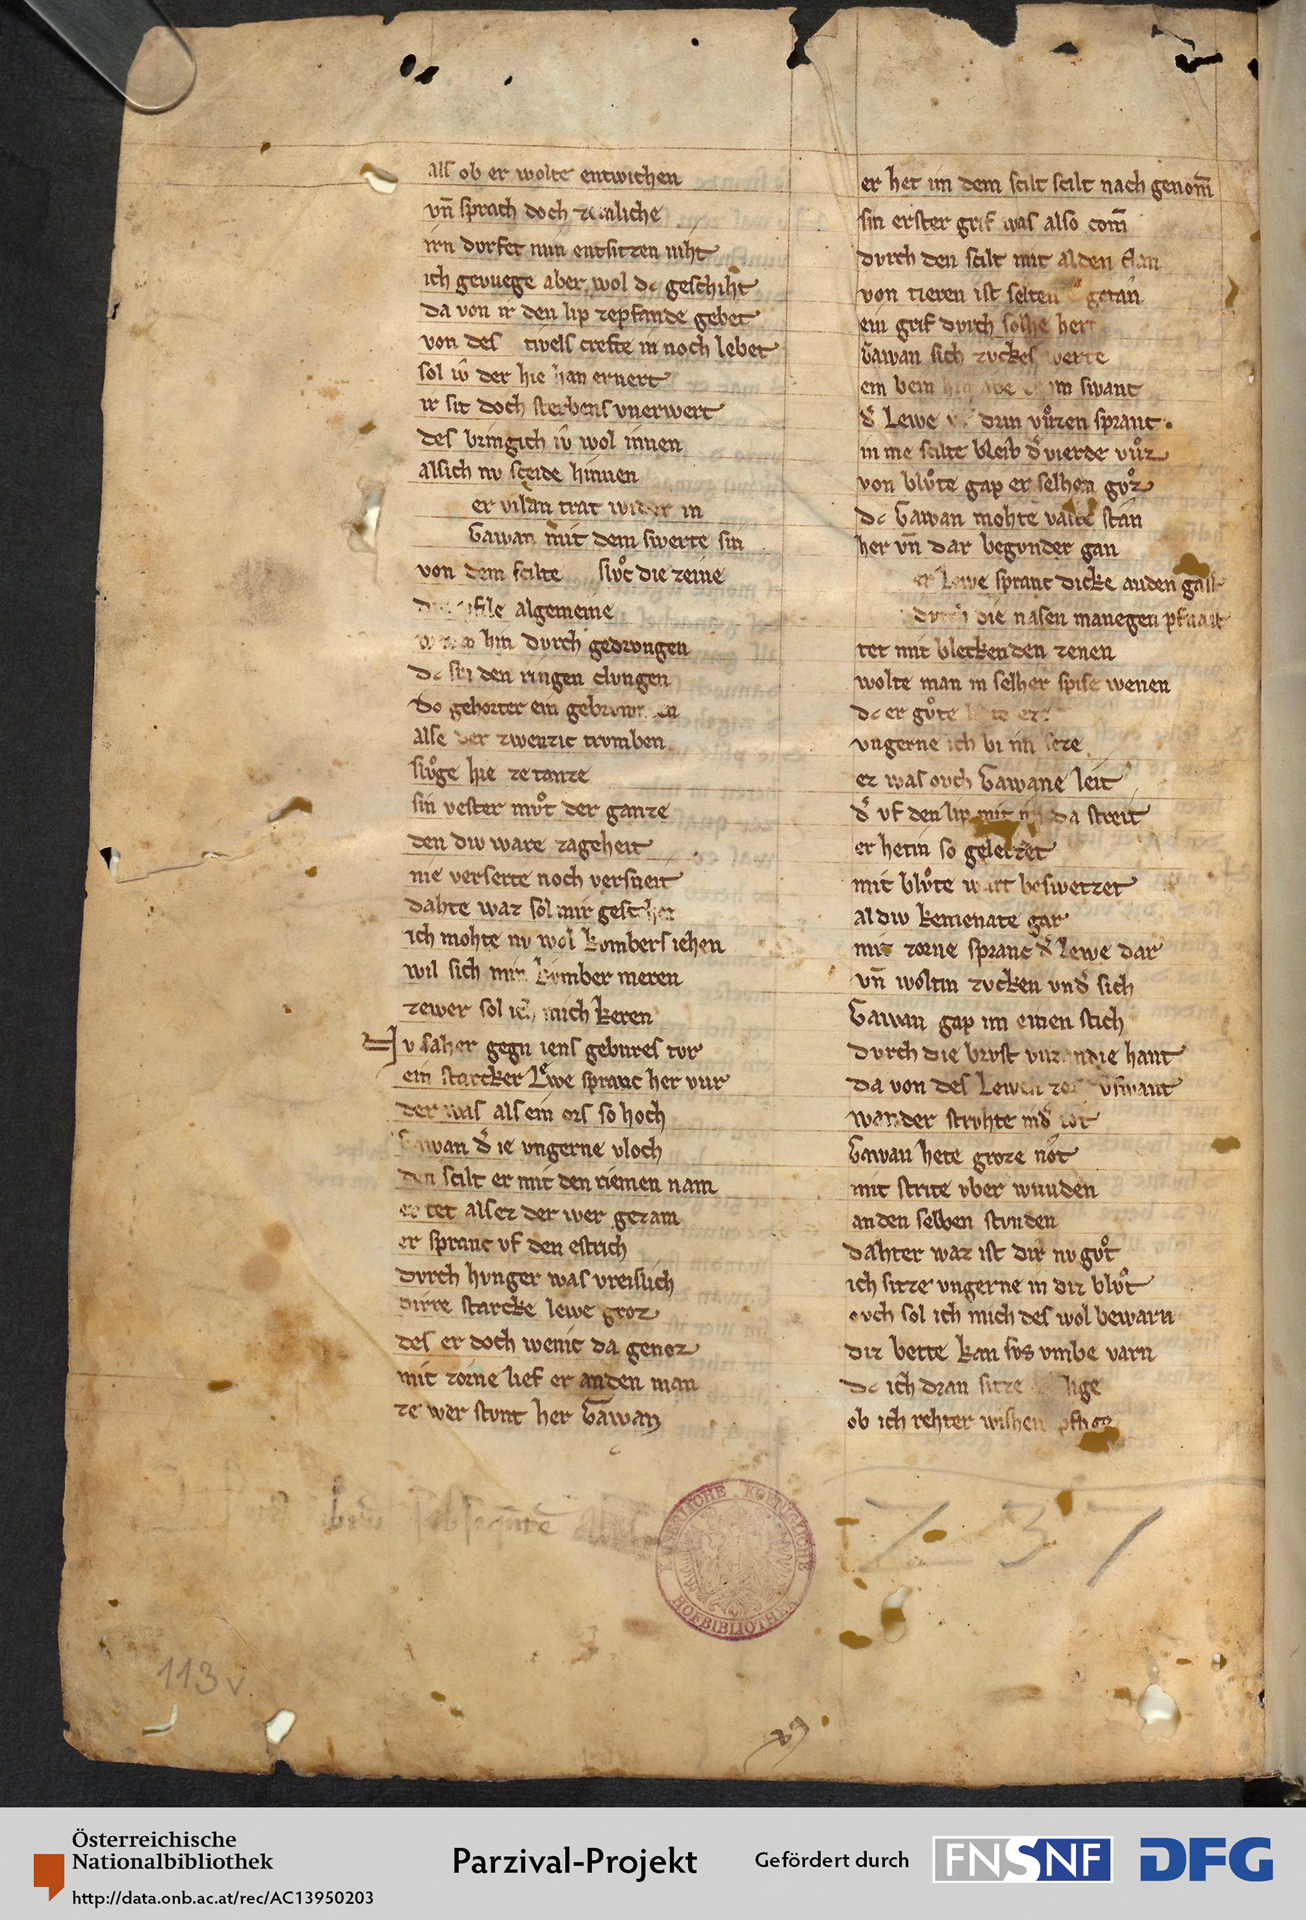 als ob er wolte entwichen
vñ sprach doch
irn dorfet min entsitzen niht
ich gevuege aber wol dc geschiht
da von ir den lip zepfande gebet
von des tivels crefte ir noch lebet
sol iv der hie han ernert
ir sit doch sterbens vnerwert
des bringich iv wol innen
alsich nv sceide hinnen
er vilan trat wider in
Gawan mit dem swerte sin
von dem scilte slvͦc die zeine
pfile algemeine
waren hin dvrch gedrvngen
dc sei den ringen clvngen
Do gehorter ein gebrvmmen
alse der zwenzic trvmben
slvͦge hie ze tanze
sin vester mvͦt der ganze
den div ware zageheit
nie verserte noch versneit
dahte waz sol mir geschehen
ich mohte nv wol kombers iehen
wil sich min kvmber meren
zewer sol ich mich keren
Nv saher gegn iens gebvres tvr
ein starcker Lewe spranc her vur
der was als ein ors so hoch
Gawan d̾ ie vngerne vloch
den scilt er mit den riemen nam
er tet als ez der wer gezam
er spranc vf den estrich
dvrch hvnger was vreislich
dirre starcke lewe groz
des er doch wenic da genoz
mit zorne lief er anden man
ze wer stvnt her Gawan
er het im dem scilt scilt nach genom̄
sin erster grif was also com̄
dvrch den scilt mit al den clan
von tieren ist selten e getan
ein grif dvrch solhe hert
Gawan sich zvckes werte
ein bein hin abe er im swanc
d̾ Lewe vf drin vuͤzen spranc.
in me scilte bleib d̾ vierde vuͦz
von blvͦte gap er selhen gvͦz
dc Gawan mohte vaste stan
her vñ dar begvnder gan
er Lewe spranc dicke anden gast
dvrch die nasen manegen pfnast
tet mit bleckenden zenen
wolte man in selher spise wenen
dc er gvͦte
vngerne ich bi im seze
ez was ovch Gawane leit
d̾ vf den lip mit im da streit
er hetin so geletzet
mit blvͦte wart beswetzet
al div kemenate gar
mit zorne spranc d̾ Lewe dar
vñ woltin zvcken vnd̾ sich
Gawan gap im einen stich
dvrch die brvst vnz an die hant
da von des Lewen zorn vswant
wander strvhte nid̾ tot
Gawan hete groze not
mit strite vber wunden
anden selben stvnden
dahter waz ist dir nv gvͦt
ich sitze vngerne in diz blvͦt
ovch sol ich mich des wol bewarn
diz bette kan svs vmbe varn
dc ich dran sitze lige
ob ich rehter wisheit pflige
KAISERLICHE KOENIGLICHE
HOFBIBLIOTHEK
Z 37
113v
Österreichische
Nationalbibliothek
http://data.onb.ac.at/rec/AC13950203
Parzival-Projekt
Gefördert durch
FNSNF
DFG